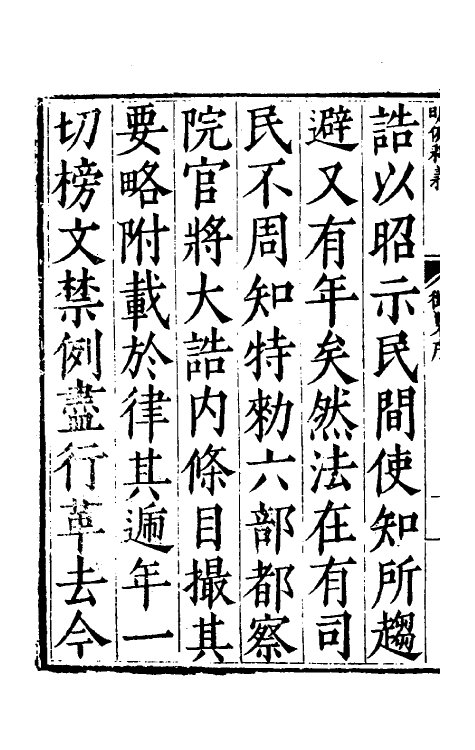 誥以昭示民間使知所趨
避又有年矣然法在有司
民不周知特勑六部都察
院官將大誥内條目撮其
要略附載於律其遞年一
切榜文禁例盡行革去今